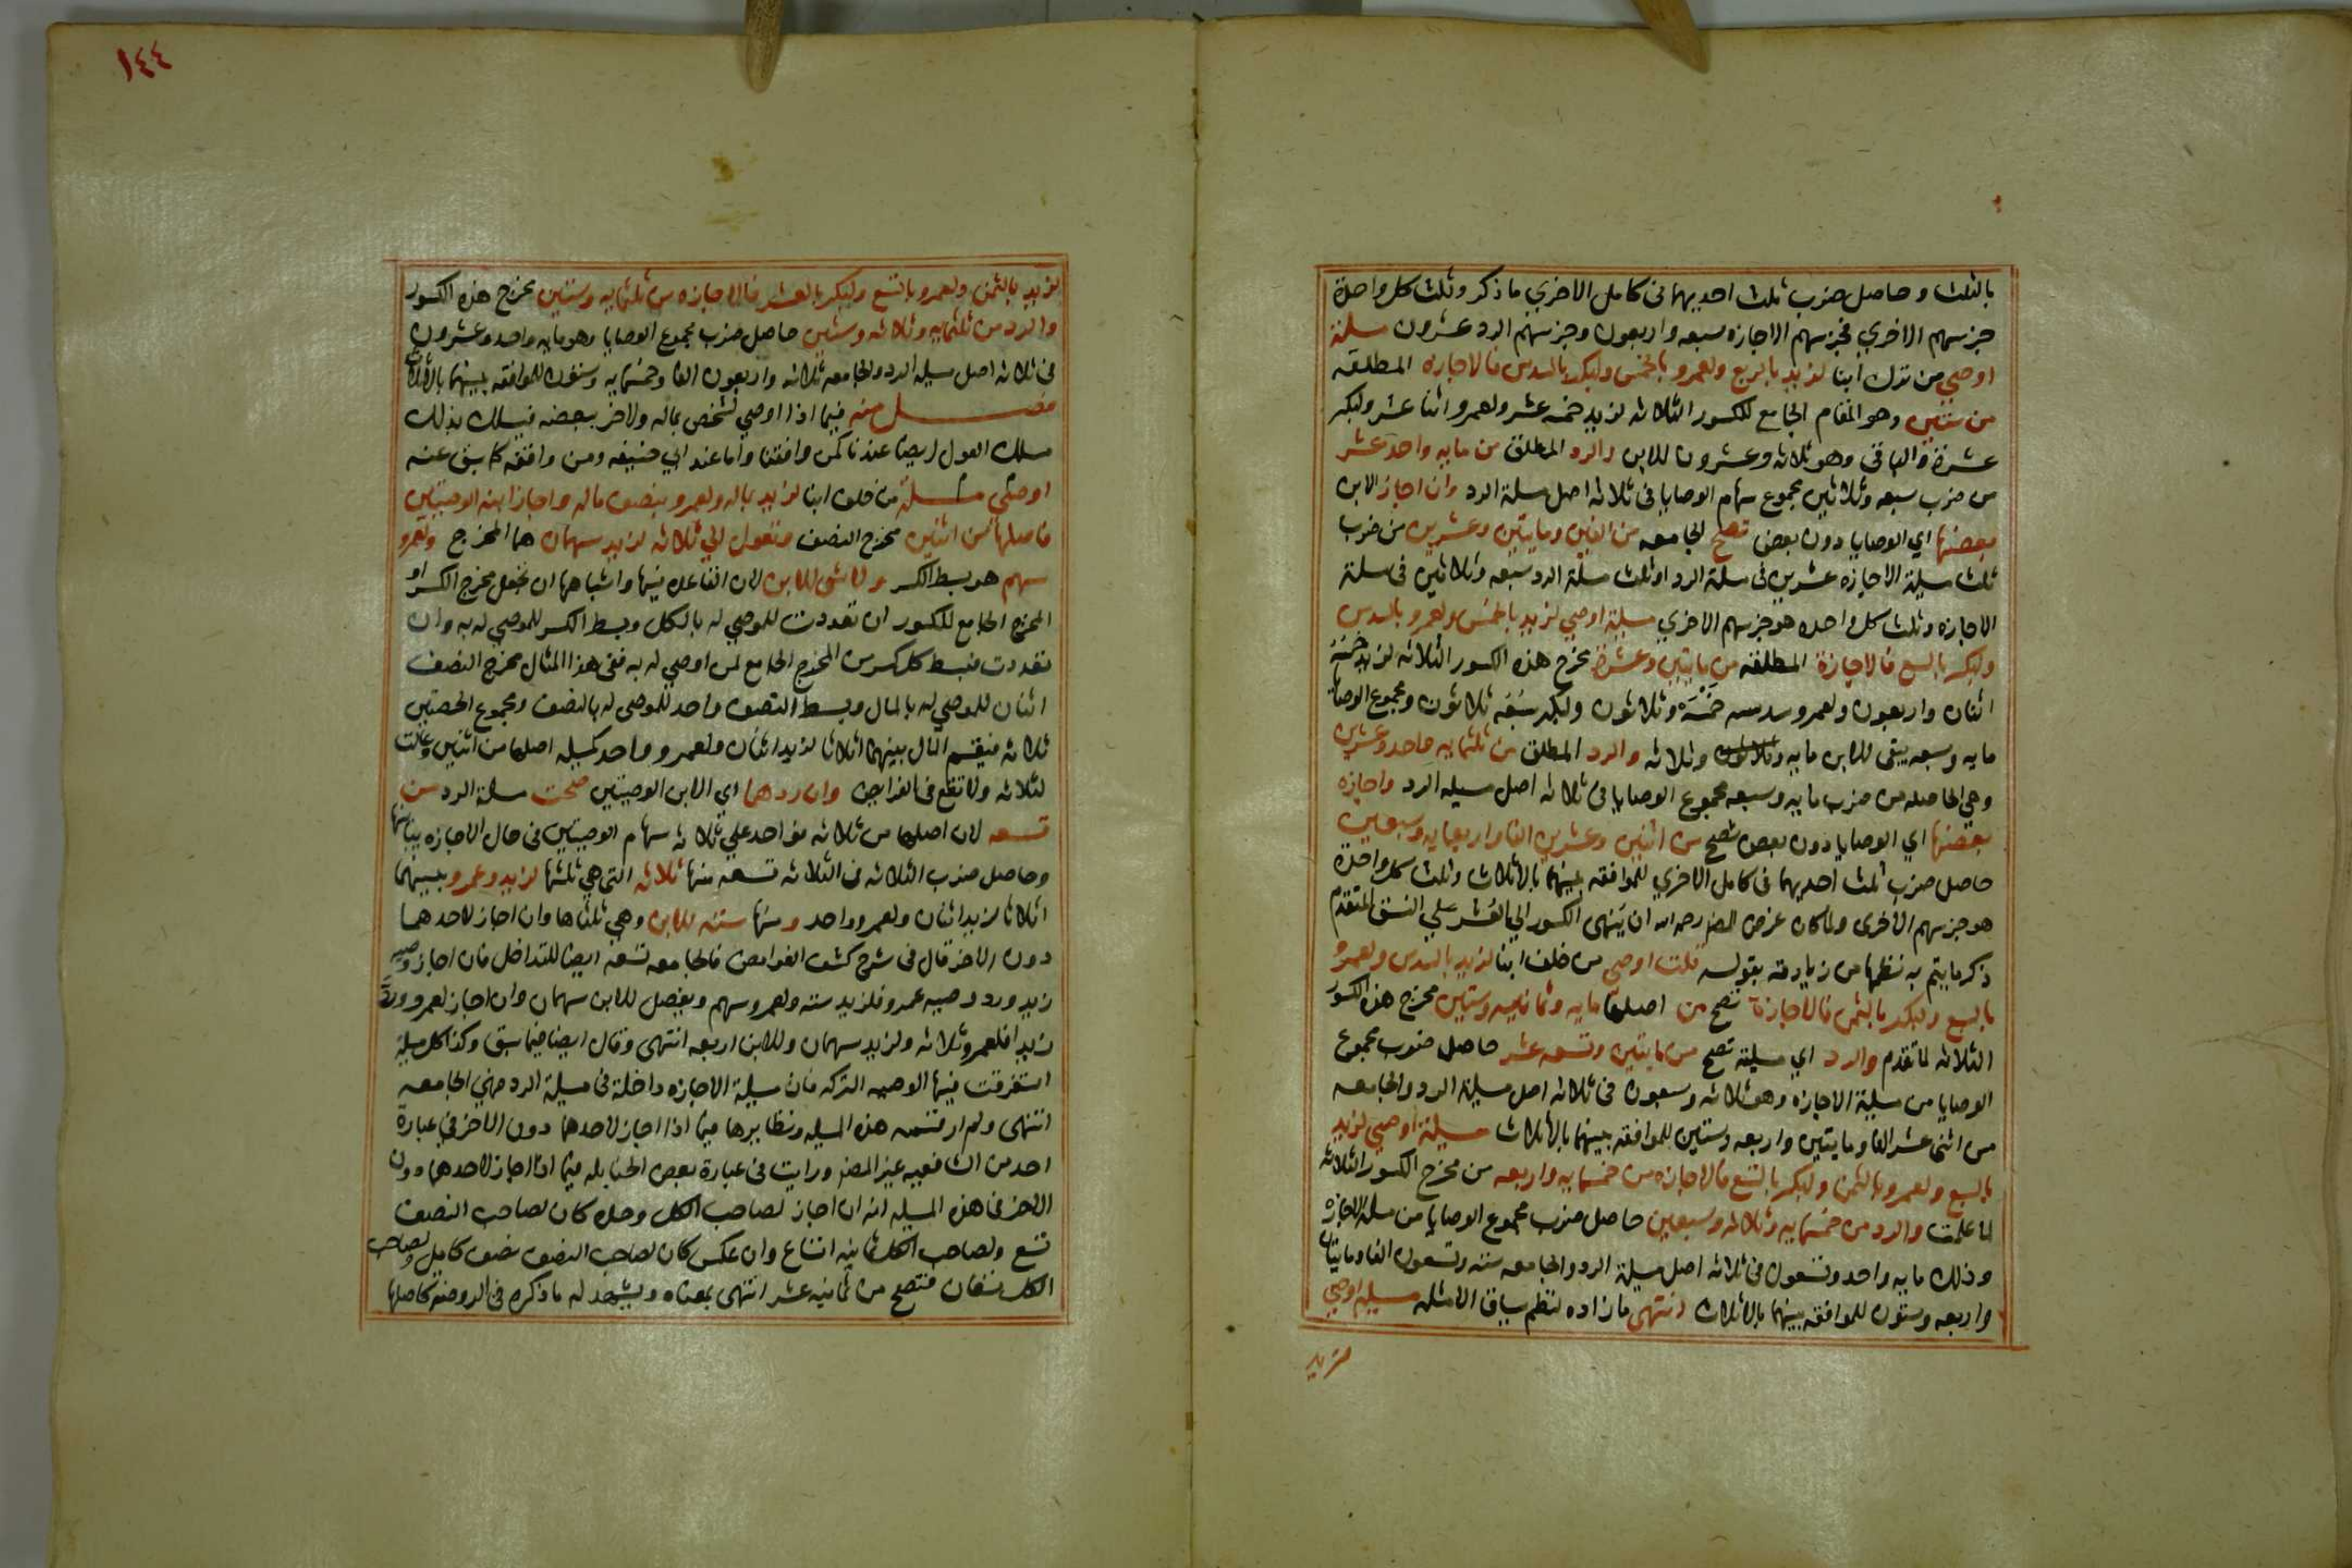 بالثلث وحاصل ضرب ثلث احديهما فى كامل الاخري ما ذكر وثلث كل واحدة
جزسهم الاخري فجزسهم الاجازه سبعه واربعون وجزسهم الرد عشرون مسلة
اوصي من ترك ابنا لزيد بالربع ولعمرو بالخمس ولبكر بالسدس فالاجازه المطلقه
من ستين وهو المقام الجامع للكسور الثلاثه لزيد خمسه عشر ولعمرو اثنا عشر ولبكر
عشرة والباقي وهو ثلاثه وعشرون للابن والرد المطلق من مايه واحد عشر
من ضرب سبعه وثلاثين مجموع سهام الوصايا فى ثلاثه اصل مسلة الرد وان اجاز الابن
بعضها اي الوصايا دون بعض تصح الجامعه من الفين ومايتين وعشرين من ضرب
ثلث مسيلة الاجازه عشرين فى مسلة الرد او ثلث مسلة الرد سبعه وثلاثين فى مسلة
الاجازه وثلث كل واحده هو جزسهم الاخري مسيلة اوصي لزيد بالخمس ولعمرو بالسدس
ولبكر بالسبع فالاجازة المطلقه من مايتين وعشرة مخرج هذه الكسور الثلاثه لزيد خمسه
اثنان واربعون ولعمرو سدسه خمسه وثلاثون ولبكر سبعه ثلاثون ومجموع الوصايا
مايه وسبعه يبقى للابن مايه وثلاثه والرد المطلق من ثلثمايه واحد وعشرين
وهي الحاصله من ضرب مايه وسبعه مجموع الوصايا فى ثلاثه اصل مسيله الرد واجازه
بعضها اي الوصايا دون بعض تصح من اثنين وعشرين الفا واربعمايه وسبعين
حاصل ضرب ثلث احديهما فى كامل الاخري للموافقه بينهما بالاثلاث وثلث كل واحدة
هو جزسهم الاخرى ولما كان غرض المص رحمه الله ان ينهى الكسور الي العشر على النسق المتقدم
ذكر ما يتم به نظمها من زيادته بقوله قلت اوصى من خلف ابنا لزيد بالسدس ولعمرو
بالسبع ولبكر بالثمن فالاجازة تصح من اصلها مايه وثمانيه وستين مخرج هذه الكسور
الثلاثه لما تقدم والرد اي مسيلته تصح من مايتين وتسعه عشر حاصل ضرب مجموع
الوصايا من مسيلة الاجازه وهو ثلاثه وسبعون فى ثلاثه اصل مسيلة الرد والجامعه
من اثنى عشر الفا ومايتين واربعه وستين للموافقه بينهما بالاثلاث مسيلة اوصي لزيد
بالسبع ولعمرو بالثمن ولبكر بالتسع فالاجازه من خمسمايه واربعه من مخرج الكسور الثلاثه
لما علمت والرد من خمسمايه وثلاثه وسبعين حاصل ضرب مجموع الوصايا من مسلة الاجازه
وذلك مايه واحد وتسعون فى ثلاثه اصل مسيلة الرد والجامعه سته وتسعون الفا ومايتان
واربعه وستون للموافقه بينهما بالاثلاث انتهى ما زاده لنظم سياق الامثله مسيله اوصي
لزيد
١٤٤
لزيد بالثمن ولعمرو بالتسع ولبكر بالعشر فالاجازه من ثلثمايه وستين مخرج هذه الكسور
والرد من ثلثمايه وثلاثه وستين حاصل ضرب مجموع الوصايا وهو مايه واحد وعشرون
فى ثلاثه اصل مسيله الرد والجامعه ثلاثه واربعون الفا وخمسمايه وستون للموافقه بينهما بالاثلاث
فصل منه فيما اذا اوصي لشخص بماله ولاخر ببعضه فيسلك بذلك
مسلك العول ايضا عندنا كمن وافقنا واما عند ابي حنيفه ومن وافقه كما سبق عنه
اوصى مسلة من خلف ابنا لزيد بماله ولعمرو بنصف ماله واجاز ابنه الوصيتين
فاصلها من اثنين مخرج النصف وتعول الي ثلاثه لزيد سهمان هما المخرج ولعمرو
سهم هو بسط الكسر ولا شى للابن لان القاعده فيها واشباهها ان تجعل مخرج الكسر او
المخرج الجامع للكسور ان تعددت للموصي له بالكل وبسط الكسر للموصي له به وان
تعددت فبسط كل كسر من المخرج الجامع لمن اوصي له به ففى هذا المثال مخرج النصف
اثنان للموصي له بالمال وبسط النصف واحد للموصى له بالنصف ومجموع الحصتين
ثلاثه فيقسم المال بينهما اثلاثا لزيد اثنان ولعمرو واحد كمسيله اصلها من اثنين وعالت
لثلاثه ولا تقع فى الفرايض وان ردهما اي الابن الوصيتين صحت مسلة الرد من
تسعه لان اصلها من ثلاثه مو احد علي ثلاثه سهام الوصيتين فى حال الاجازه يباينها
وحاصل ضرب الثلاثه فى الثلاثه تسعه منها ثلاثه التى هي ثلثها لزيد وعمرو بينهما
اثلاثا لزيد اثنان ولعمرو واحد ومنها سته للابن وهي ثلثاها وان اجاز لاحدهما
دون الاخر قال فى شرح كشف الغوامض فالجامعه تسعه ايضا للتداخل فان اجاز وصيه
زيد ورد وصيه عمرو فلزيد سته ولعمرو سهم ويفضل للابن سهمان وان اجاز لعمرو ورد
زيدا فلعمرو ثلاثه ولزيد سهمان وللابن اربعه انتهى وقال ايضا فيما سبق وكذا كل مسيلة
استغرقت فيها الوصيه التركه فان مسيلة الاجازه داخلة فى مسيلة الرد فهي الجامعه
انتهى ولم ار قسمه هذه المسيله ونظايرها فيما اذا اجاز لاحدهما دون الاخر في عبارة
احد من الشافعيه غير المص ورايت فى عبارة بعض الحنابله فيما اذا اجاز لاحدهما دون
الاخر فى هذه المسيله انه ان اجاز لصاحب الكل وحده كان لصاحب النصف
تسع ولصاحب الكل ثمانيه اتساع وان عكس كان لصاحب النصف نصف كامل ولصاحب
الكل تسعان فتصح من ثمانيه عشر انتهى بمعناه ويشهد له ما ذكره فى الروضة كاصلها